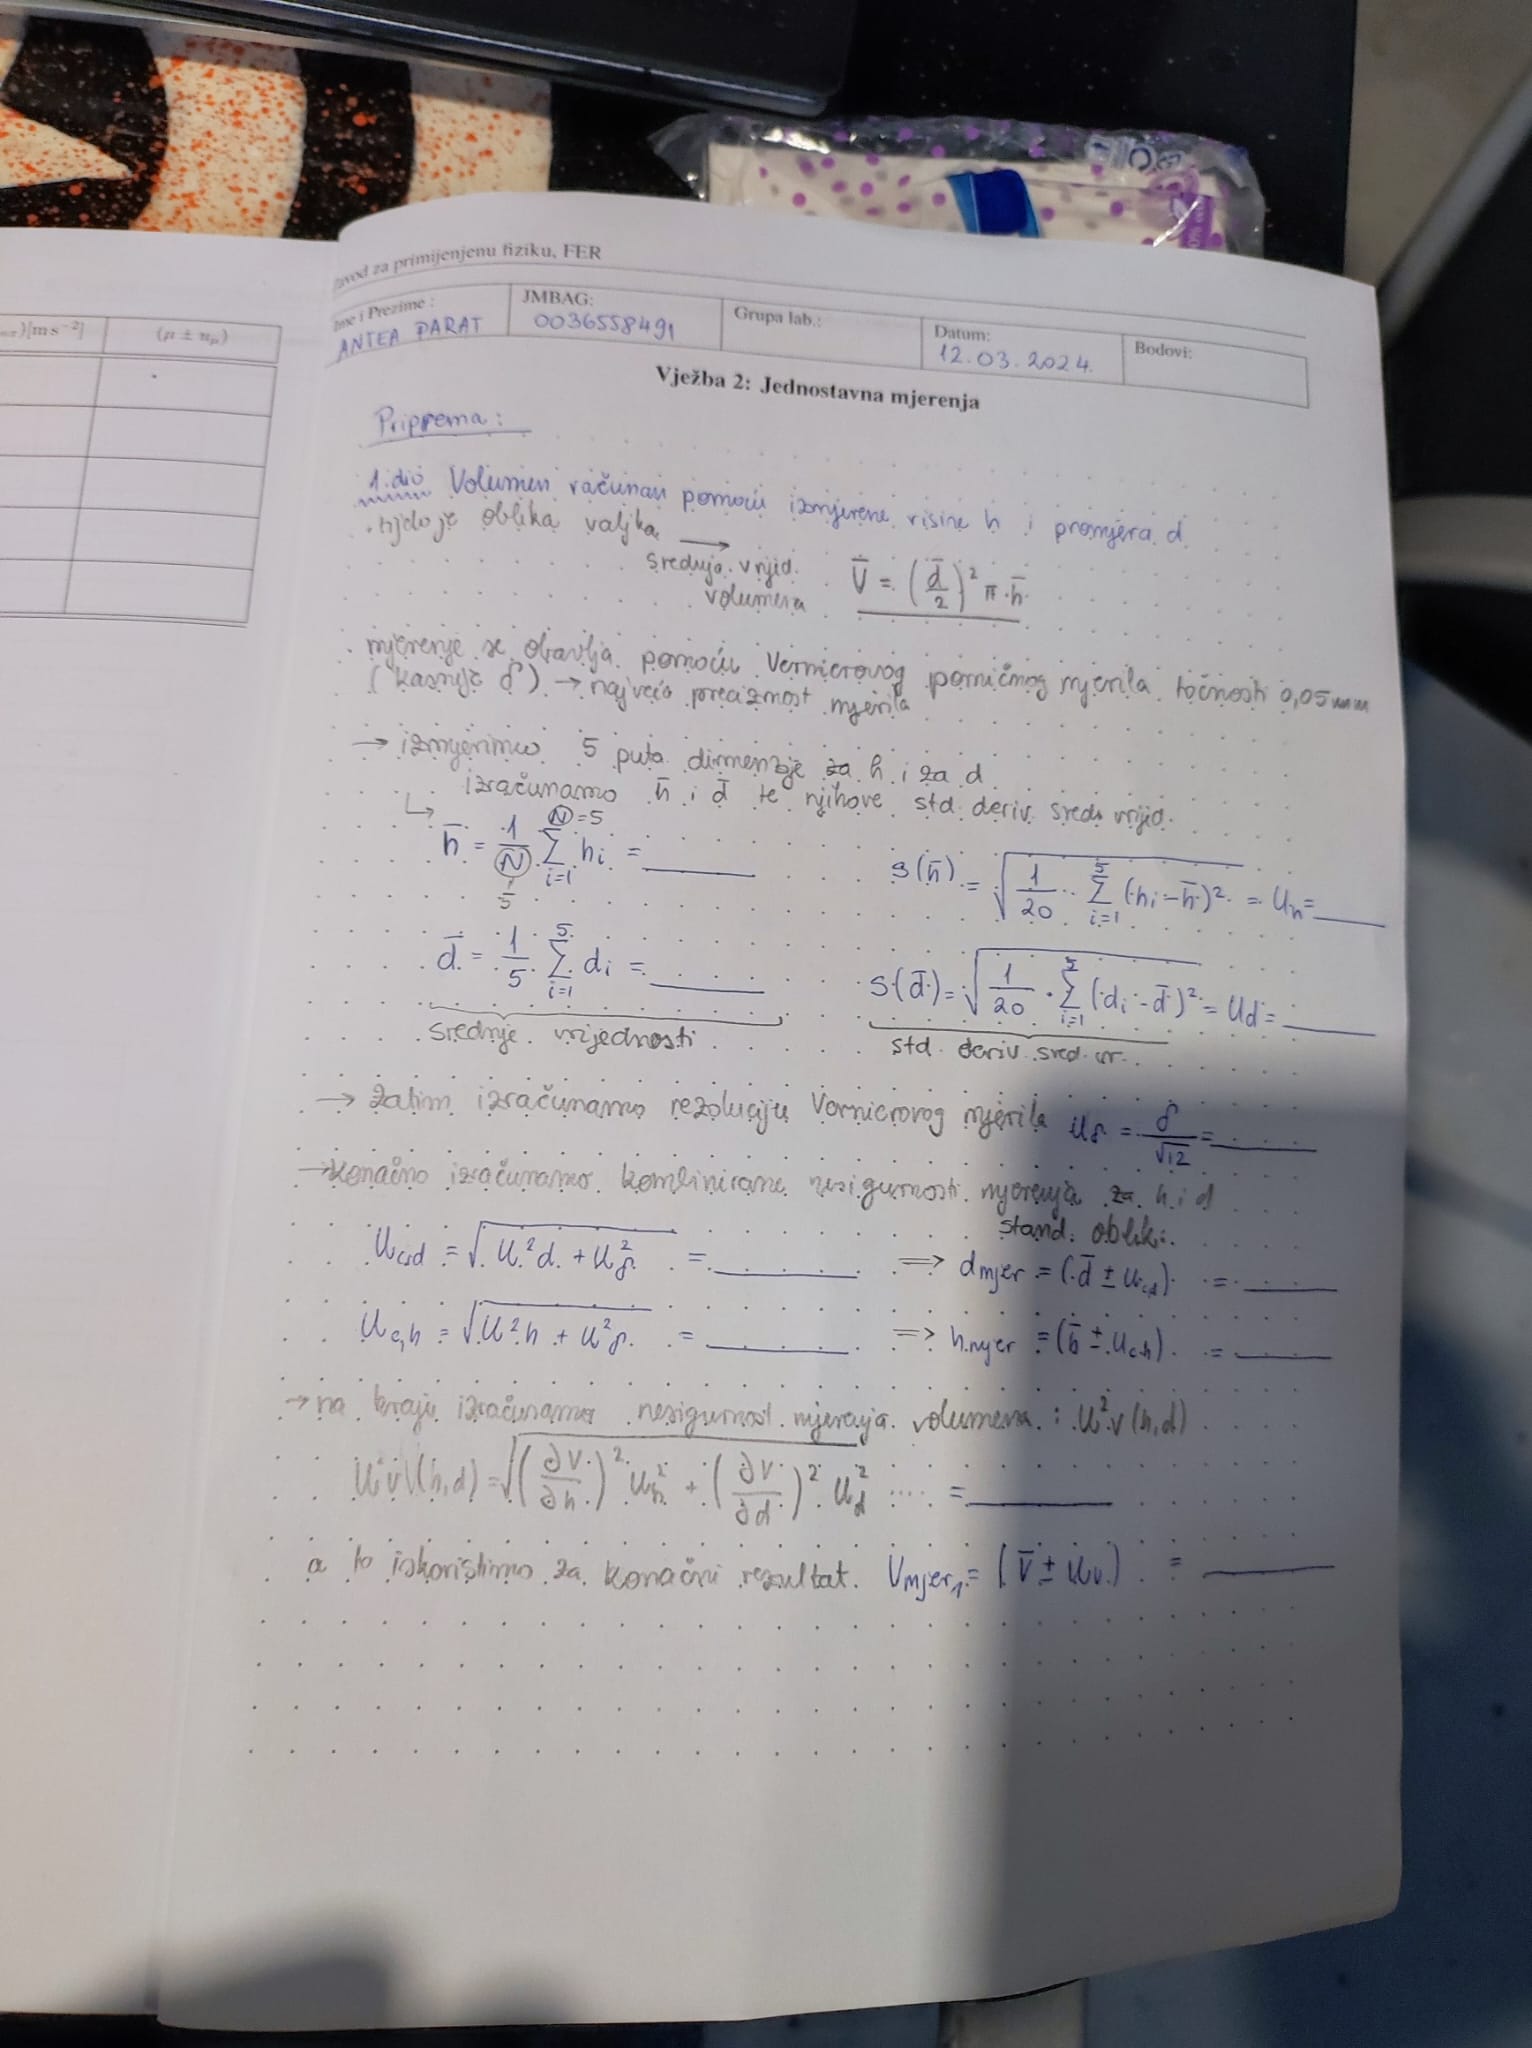 Zavod za primijenjenu fiziku, FER
Ime i Prezime :
ANTEA PARAT
JMBAG:
0036558491
Grupa lab.:
Datum:
12.03.2024.
Bodovi:
)[m s⁻²]
(μ ± uμ)
Vježba 2: Jednostavna mjerenja
Priprema:
1. dio Volumen računan pomoću izmjerene visine h i promjera d
tijelo je oblika valjka →
srednja vrijd. volumena V̄ = (d̄/2)² π · h̄
mjerenje se obavlja pomoću Vernierovog pomičnog mjerila točnosti 0,05 mm
(kasnije δ) → najveća preciznost mjerila
→ izmjerimo 5 puta dimenzije za h i za d
izračunamo h̄ i d̄ te njihove std deriv. sred. vrijd.
↳ h̄ = 1/N Σ hi = N=5 i=1 5
s(h̄) = √(1/20 · Σ (hi - h̄)²) = Uh = 5 i=1
d̄ = 1/5 Σ di = 5 i=1
s(d̄) = √(1/20 · Σ (di - d̄)²) = Ud = 5 i=1
srednje vrijednosti
std. deriv. sred. vr.
→ zatim izračunamo rezoluciju Vernierovog mjerila uδ = δ/√12 =
→ konačno izračunamo kombinirane nesigurnosti mjerenja za h i d
stand. oblik:
Uc,d = √(U²d + U²δ) = ⇒ dmjer = (d̄ ± uc,d) =
Uc,h = √(U²h + U²δ) = ⇒ hmjer = (h̄ ± uc,h) =
→ na kraju izračunamo nesigurnost mjerenja volumena : U²v(h,d)
(h,d) = √((∂V/∂h)² Uh² + (∂V/∂d)² Ud²) .... =
a to iskoristimo za konačni rezultat. Vmjer,1 = (V̄ ± uv) =